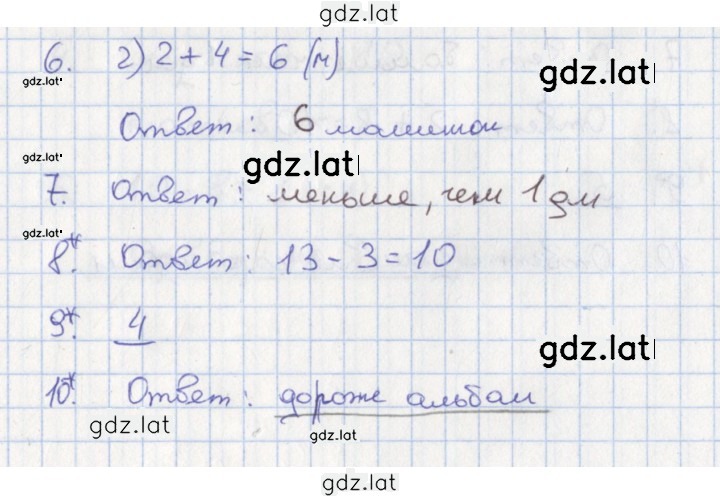 gdz.lat
6. г) 2 + 4 = 6 (м)
gdz.lat
gdz.lat
Ответ: 6 машинок
gdz.lat
gdz.lat
7. Ответ: меньше, чем 1 дм
gdz.lat
8*. Ответ: 13 - 3 = 10
9*. 4
gdz.lat
10*. Ответ: дороже альбом
gdz.lat
gdz.lat
gdz.lat